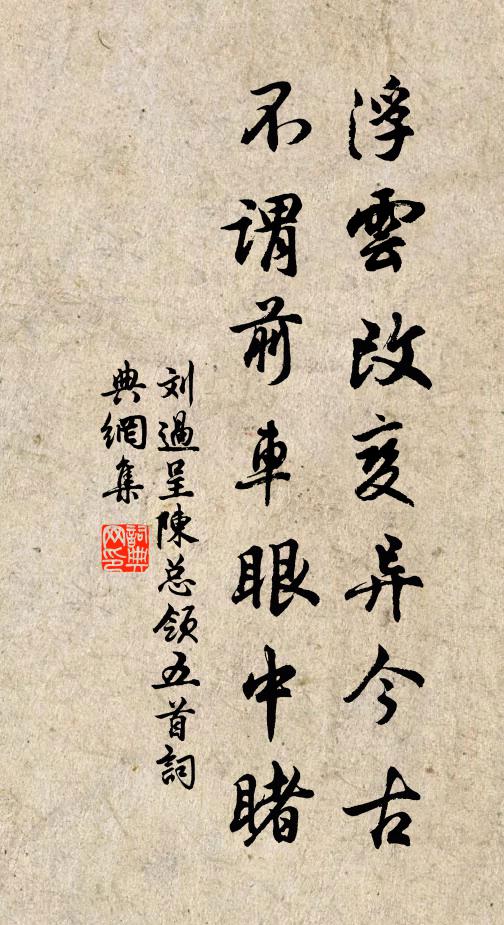 浮雲改变异今古
不謂前車眼中睹
刘過呈陳总领五首詞
典網集
詞典网印